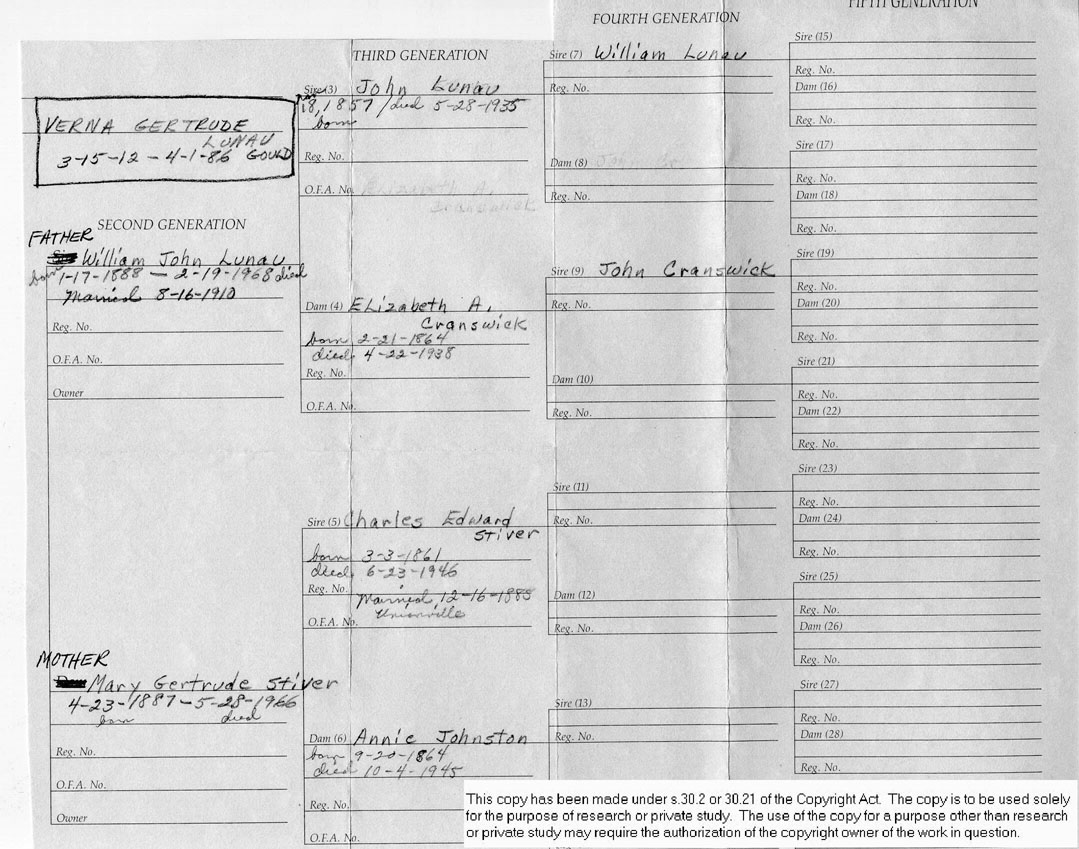 VERNA GERTRUDE
LUNAU
3-15-12 - 4-1-86 GOULD
SECOND GENERATION
FATHER
William John Lunau
born 1-17-1888 - 2-19-1968 died
Married 8-16-1910
Reg. No.
O.F.A. No.
Owner
MOTHER
Mary Gertrude Stiver
4-23-1887 - 5-28-1966
born died
Reg. No.
O.F.A. No.
Owner
THIRD GENERATION
Sire (3) John Lunau
18, 1857 / died 5-28-1935
born
Reg. No.
O.F.A. No. Elizabeth A.
Cranswick
Dam (4) ELizabeth A.
Cranswick
born 2-21-1864
died 4-22-1938
Reg. No.
O.F.A. No.
Sire (5) Charles Edward
Stiver
born 3-3-1861
died 6-23-1946
Reg. No.
Married 12-16-1885
Unionville
O.F.A. No.
Dam (6) Annie Johnston
born 9-20-1864
died 10-4-1945
Reg. No.
O.F.A. No.
FOURTH GENERATION
Sire (7) William Lunau
Reg. No.
Dam (8) John
Reg. No.
Sire (9) John Cranswick
Reg. No.
Dam (10)
Reg. No.
Sire (11)
Reg. No.
Dam (12)
Reg. No.
Sire (13)
Reg. No.
FIFTH GENERATION
Sire (15)
Reg. No.
Dam (16)
Reg. No.
Sire (17)
Reg. No.
Dam (18)
Reg. No.
Sire (19)
Reg. No.
Dam (20)
Reg. No.
Sire (21)
Reg. No.
Dam (22)
Reg. No.
Sire (23)
Reg. No.
Dam (24)
Reg. No.
Sire (25)
Reg. No.
Dam (26)
Reg. No.
Sire (27)
Reg. No.
Dam (28)
Reg. No.
This copy has been made under s.30.2 or 30.21 of the Copyright Act. The copy is to be used solely
for the purpose of research or private study. The use of the copy for a purpose other than research
or private study may require the authorization of the copyright owner of the work in question.